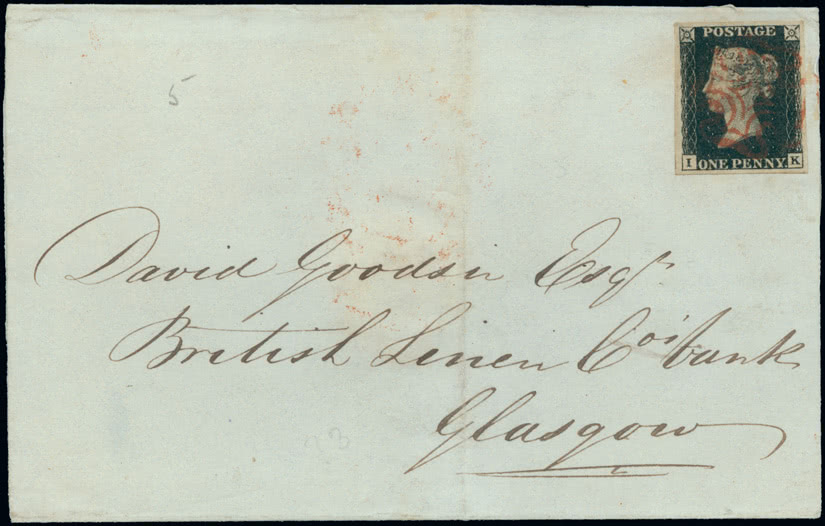 5
POSTAGE
I ONE PENNY. K
David Goodsir Esqr
British Linen Co's bank
Glasgow
23